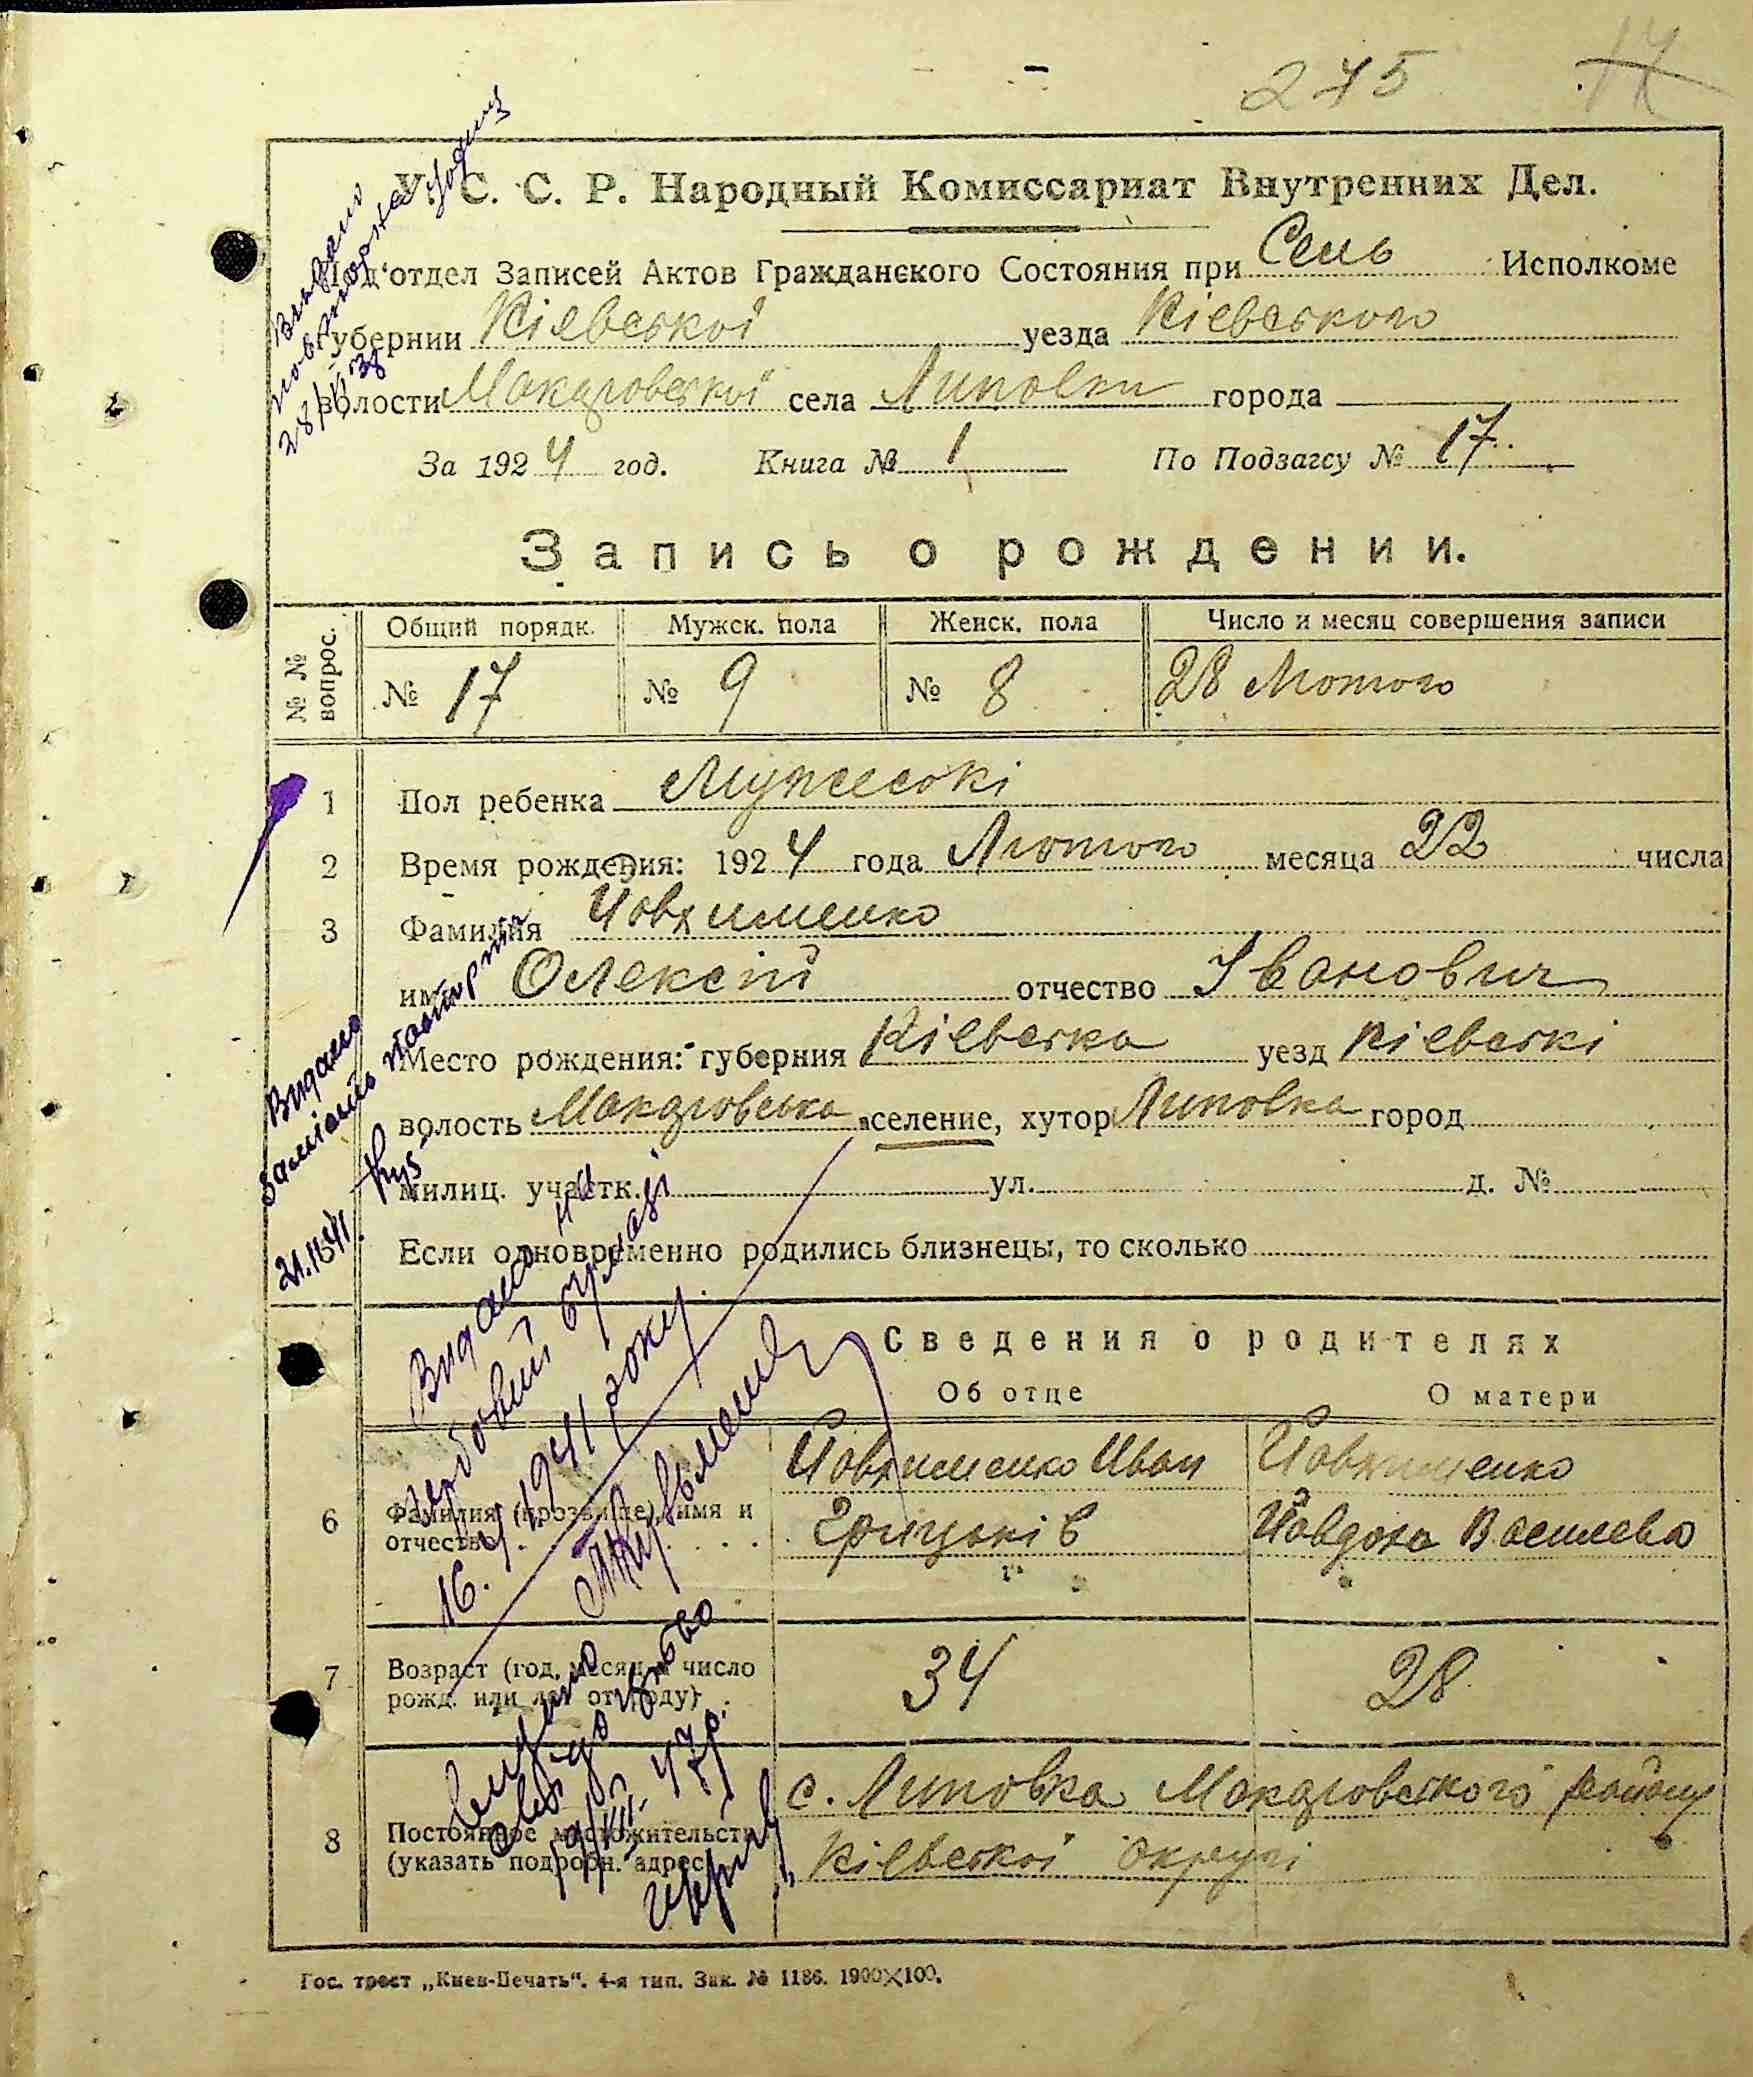 275 17
У. С. С. Р. Народный Комиссариат Внутренних Дел.
Под'отдел Записей Актов Гражданского Состояния при Сель Исполкоме
Губернии Кіевської уезда Кіевського
волости Макаровської села Липовки города
За 1924 год. Книга № 1 По Подзагсу № 17
Запись о рождении.
№ № вопрос. Общий порядк. Мужск. пола Женск. пола Число и месяц совершения записи
№ 17 № 9 № 8 28 Лютого
1 Пол ребенка Мужескі
2 Время рождения: 1924 года Лютого месяца 22 числа
3 Фамилия Йовхименко
имя Олексій отчество Іванович
Место рождения: губерния Кіевска уезд Кіевскі
волость Макаровська селение, хутор Липовка город
милиц. участк. ул. д. №
5 Если одновременно родились близнецы, то сколько
Сведения о родителях
Об отце О матери
6 Фамилия (прозвище), имя и отчество
Йовхименко Иван
Грицьків
Йовхименко
Йовдоха Василева
7 Возраст (год, месяц и число рожд. или лет отроду)
34 28
8 Постоянное местожительство (указать подробн. адрес)
с. Липовка Макаровского району
Кіевскої Округи
Видано
повторно
28/ 38
Видано
замість
21.II 41.
Видано на
гербовий бумазі
16. V 1941 року.
Видано
свід-до
9/XII- 47р.
Гос. трест „Киев-Печать“. 4-я тип. Зак. № 1186. 1900×100.